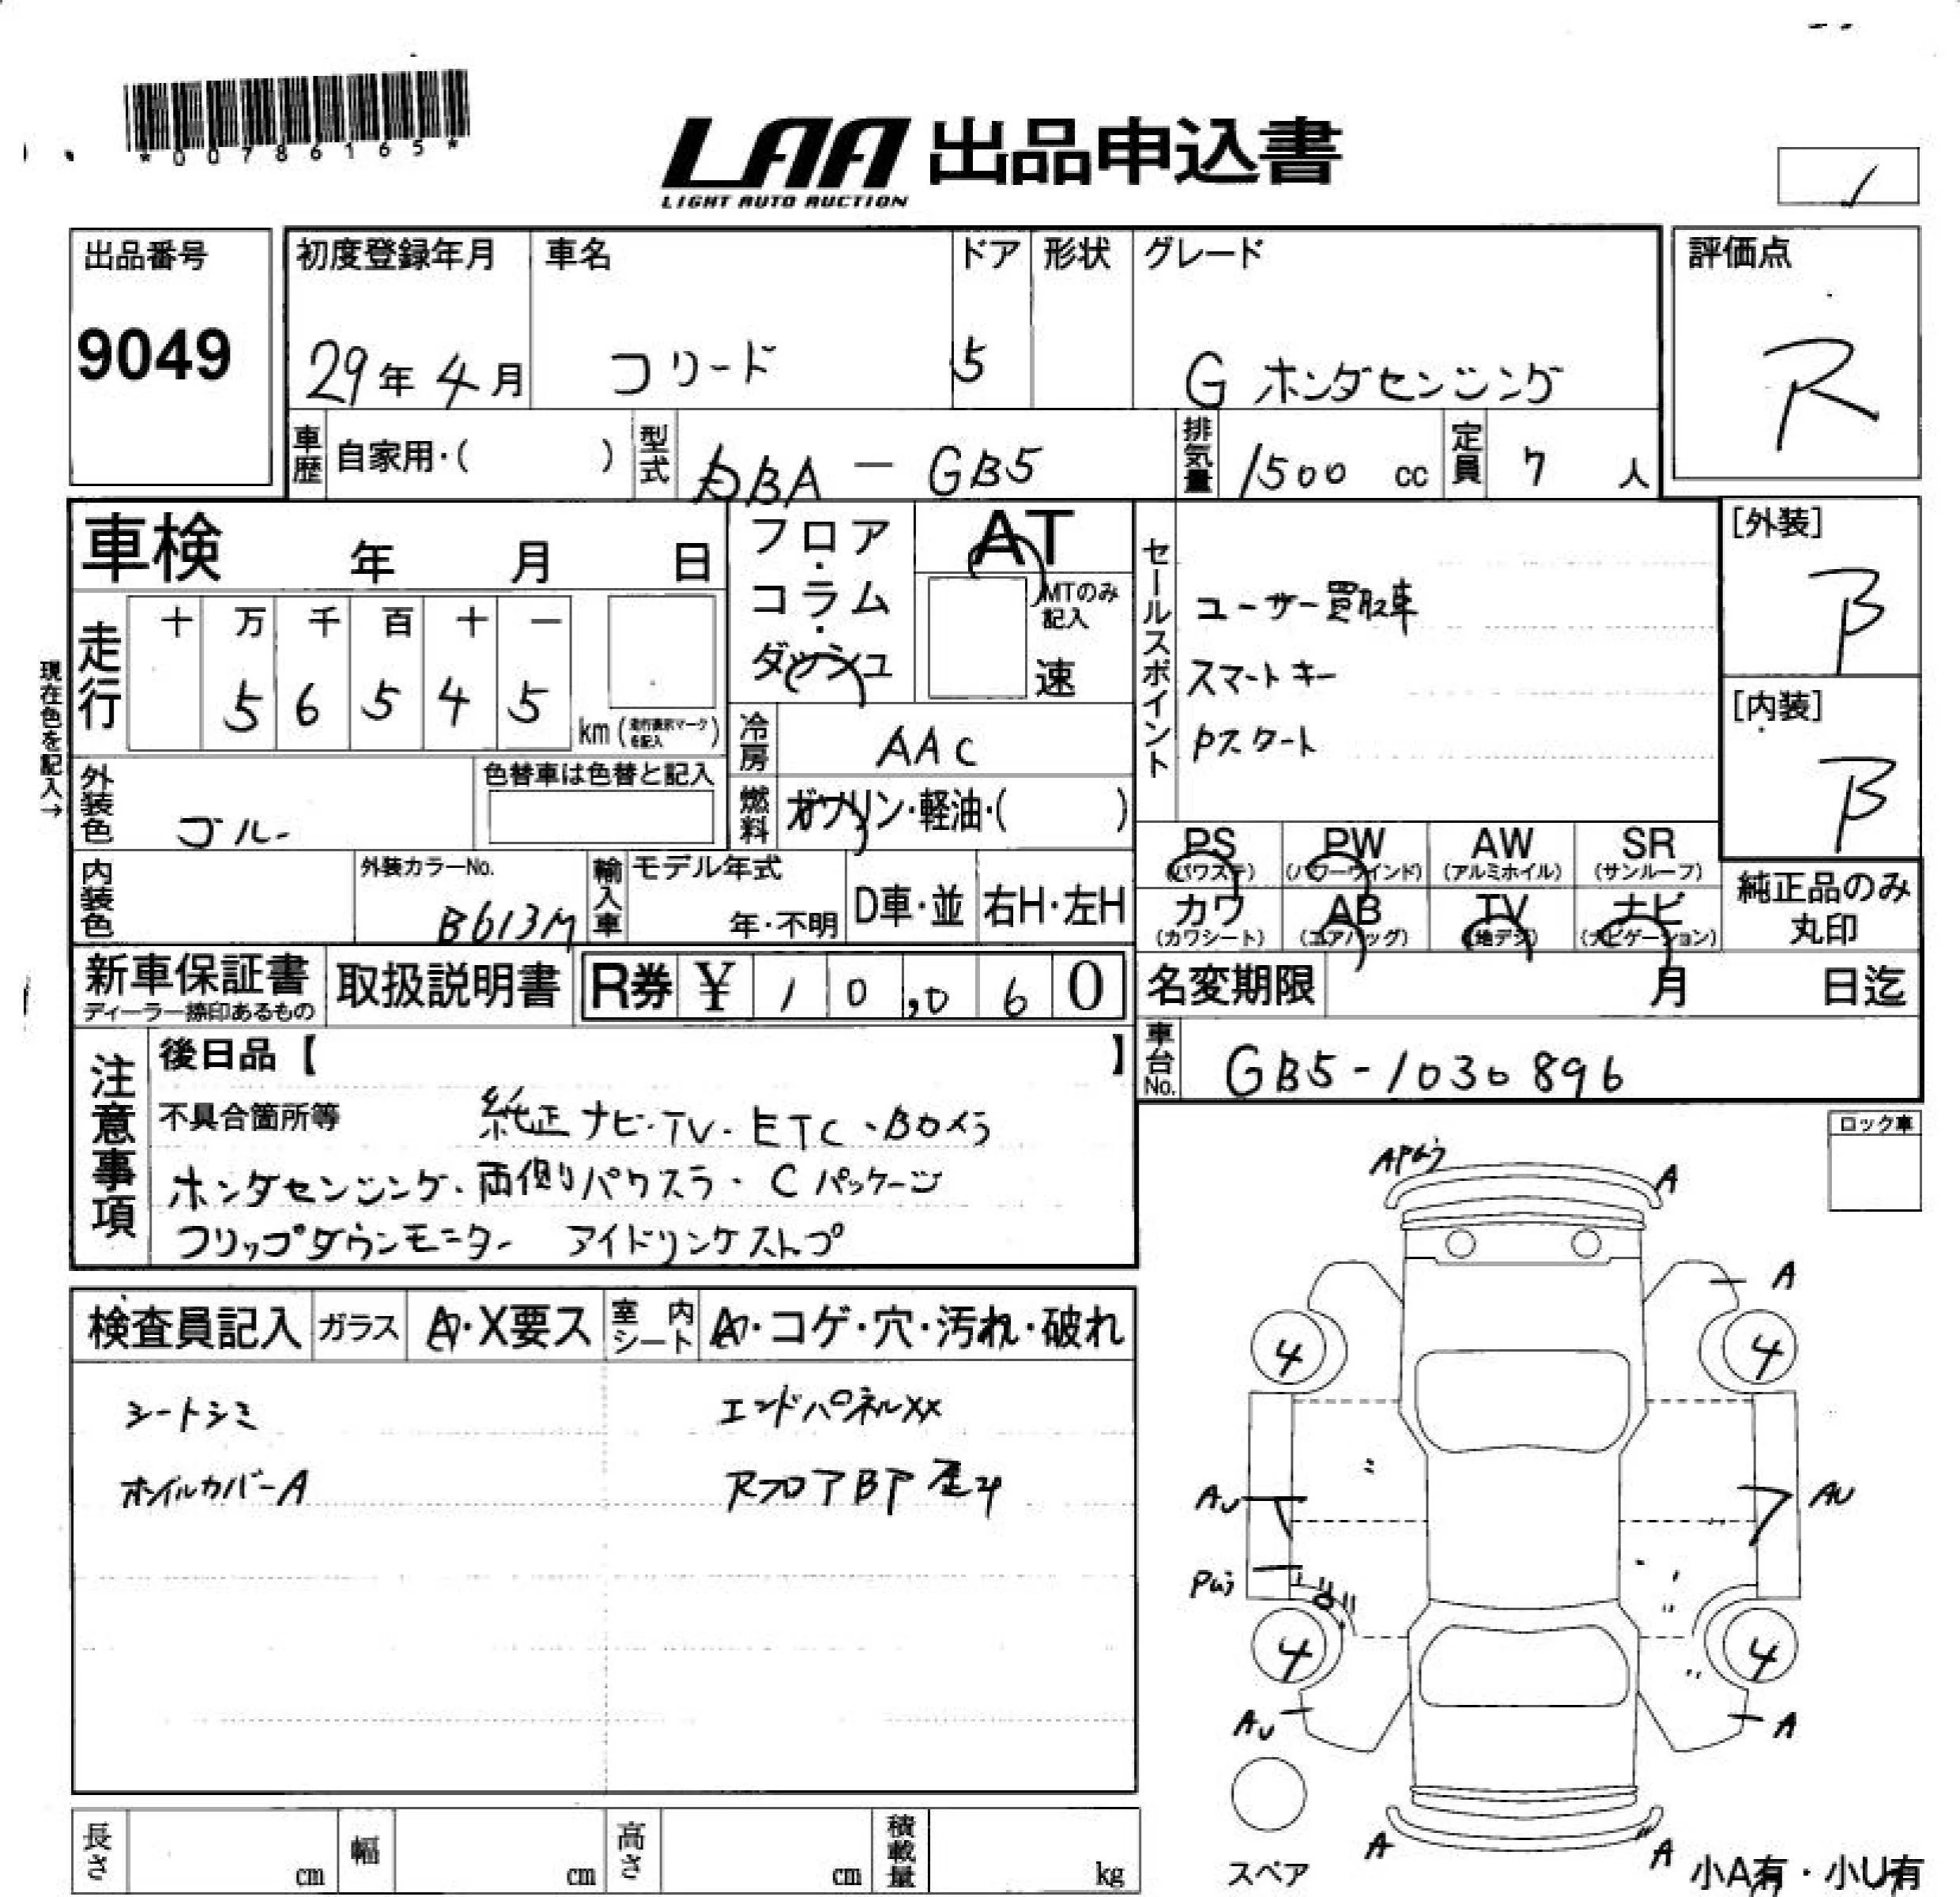 *00786165*
LAA 出品申込書
LIGHT AUTO AUCTION
出品番号
9049
初度登録年月
29年 4月
車名
フリード
ドア
5
形状
グレード
G ホンダセンシング
評価点
R
車歴
自家用・( )
型式
DBA - GB5
排気量
1500 cc
定員
7 人
車検 年 月 日
フロア・コラム・ダッシュ
AT
MTのみ記入
速
セールスポイント
ユーザー買取車
スマートキー
Pスタート
[外装]
B
[内装]
B
現在色を記入→
走行
十 万 千 百 十 一
5 6 5 4 5
km (走行表示マークを記入)
冷房
AAC
外装色
ゴルー
色替車は色替と記入
燃料
ガソリン・軽油・( )
PS
(パワステ)
PW
(パワーウインド)
AW
(アルミホイル)
SR
(サンルーフ)
内装色
外装カラーNo.
B613M
輸入車
モデル年式
年・不明
D車・並
右H・左H
カワ
(カワシート)
AB
(エアバッグ)
TV
(地デジ)
ナビ
(ナビゲーション)
純正品のみ
丸印
新車保証書
ディーラー捺印あるもの
取扱説明書
R券 ¥ 1 0 , 0 6 0
名変期限 月 日迄
車台No.
GB5-1030896
注意事項
後日品【 】
不具合箇所等
純正ナビ・TV・ETC・Bカメラ
ホンダセンシング・両側パワスラ・Cパッケージ
フリップダウンモニター アイドリングストップ
ロック車
検査員記入
ガラス
A・X要ス
室内シート
A・コゲ・穴・汚れ・破れ
シートシミ
ホイルカバーA
エンドパネルXX
RフロアBP歪み
A
A
4
4
AU
AU
4
4
AU
A
A
A
スペア
小A有・小U有
長さ cm
幅 cm
高さ cm
積載量 kg